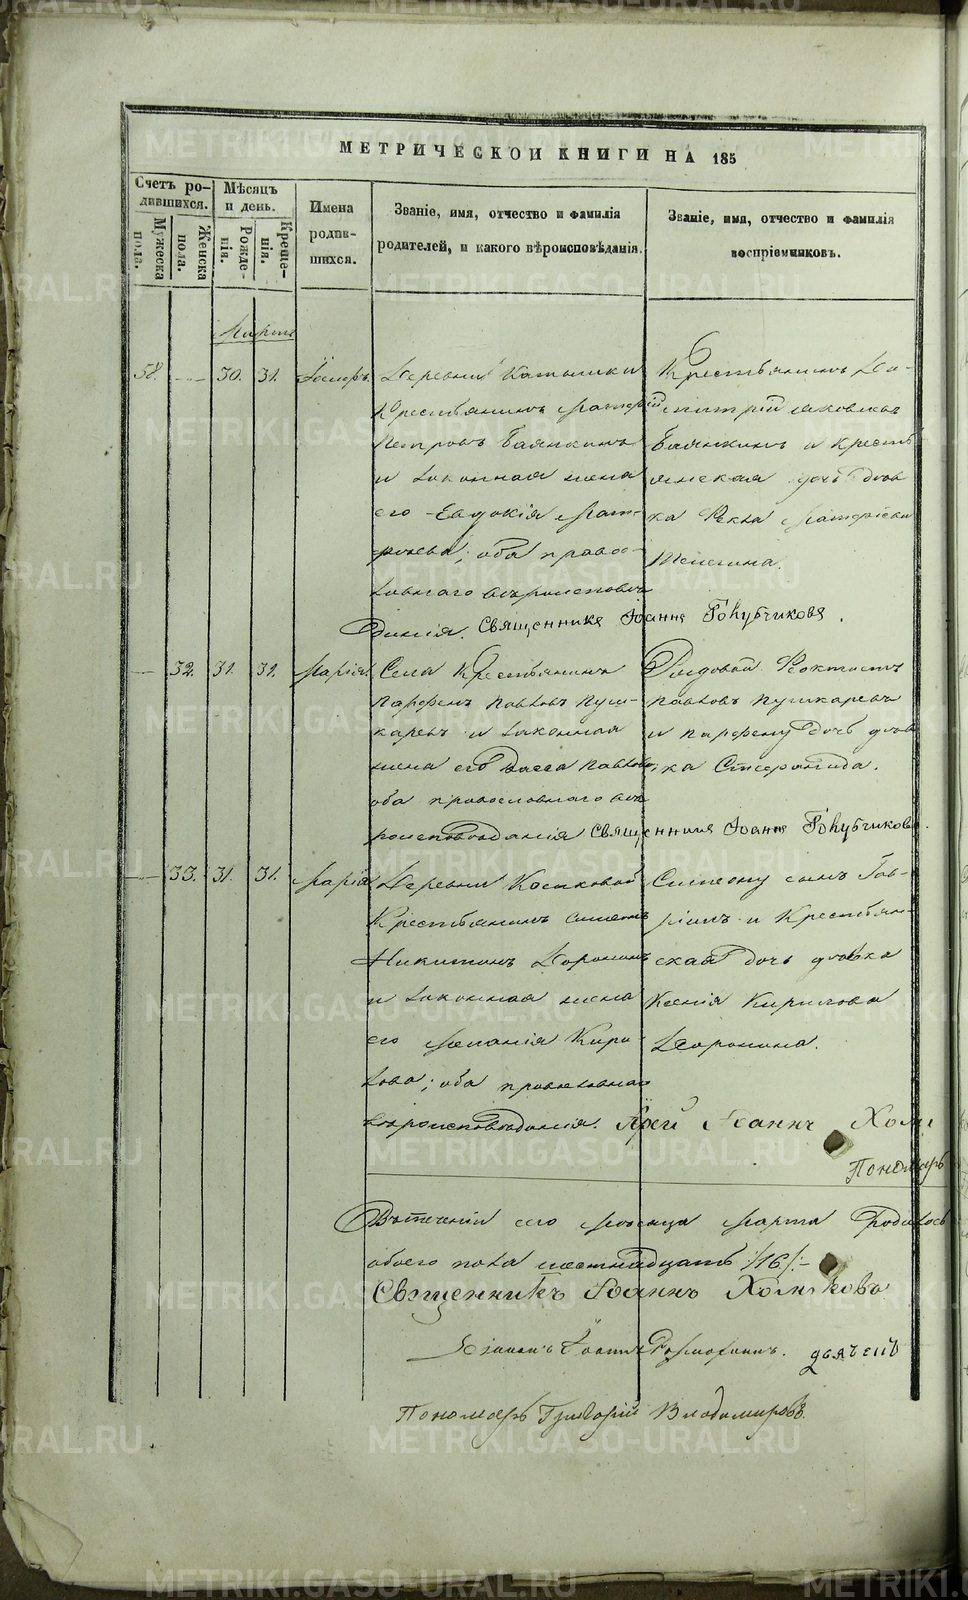 МЕТРИЧЕСКОЙ КНИГИ НА 185
Счетъ ро-
дившихся.
Мужеска
пола.
Женска
пола.
Мѣсяцъ
и день.
Рожде-
нія.
Креще-
нія.
Имена
родив-
шихся.
Званіе, имя, отчество и фамилія
родителей, и какого вѣроисповѣданія.
Званіе, имя, отчество и фамилія
воспріемниковъ.
Марта
58. 30. 31.
Деревни
Крестьянинъ
Петровъ Баянкинъ
и законная жена
его Евдокія
оба право-
славнаго вѣроисповѣ-
данія. Священникъ Іоаннъ Голубчиковъ.
Крестьянинъ Ди-
митрій Яковлевъ
Баянкинъ и кресть-
янская дочь дѣв-
ка Фекла
32. 31. 31. Марія
Села Крестьянинъ
Парфенъ Павловъ Пуш-
каревъ и законная
жена его Васса Павлова
оба православнаго вѣ-
роисповѣданія Священникъ Іоаннъ Голубчиковъ.
Рядовой Феоктистъ
Павловъ Пушкаревъ
и Парфену дочь дѣв-
ка Стефанида.
33. 31. 31. Марія
Деревни Косиковой
Крестьянинъ Симеонъ
Никитинъ Доронинъ
и законная жена
его Меланія Кири-
лова; оба православнаго
вѣроисповѣданія. Іерей Іоаннъ Холм
Симеону сынъ Гав-
ріилъ и Крестьян-
ская дочь дѣвка
Ксенія Кирилова
Доронина.
Пономарь
Въ теченіи сего мѣсяца Марта родилось
обоего пола шестнадцать /16/.
Священникъ Іоаннъ Холмаковъ
Діаконъ Іоаннъ
дьячекъ
Пономарь Григорій Владимировъ.
METRIKI.GASO-URAL.RU